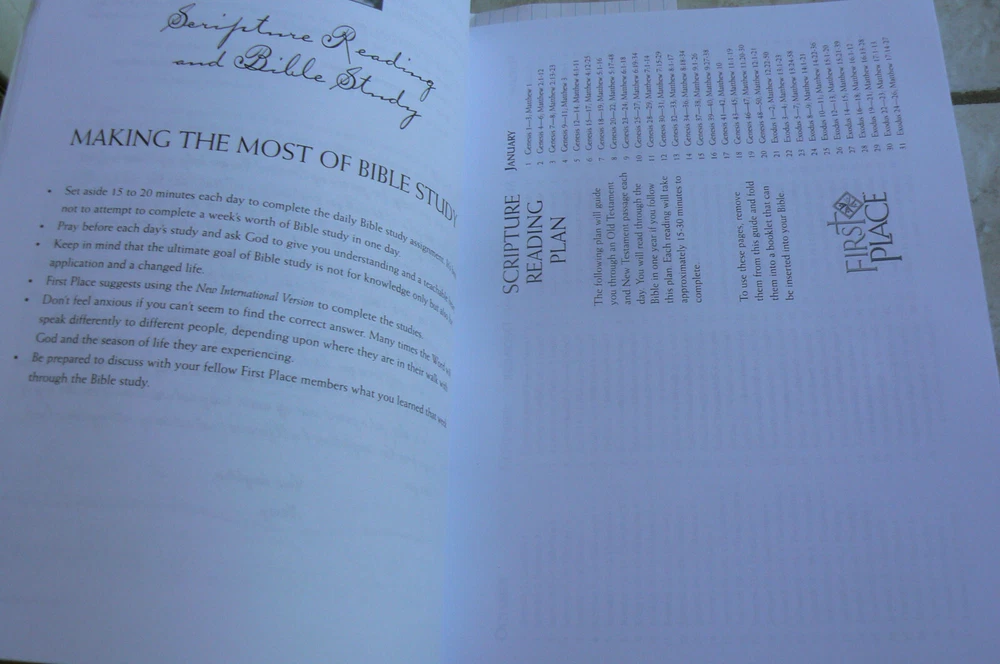 Scripture Reading
and Bible Study
MAKING THE MOST OF BIBLE STUDY
• Set aside 15 to 20 minutes each day to complete the daily Bible study assignment.
not to attempt to complete a week's worth of Bible study in one day.
• Pray before each day's study and ask God to give you understanding and a teachable
• Keep in mind that the ultimate goal of Bible study is not for knowledge only but also
application and a changed life.
• First Place suggests using the New International Version to complete the studies.
• Don't feel anxious if you can't seem to find the correct answer. Many times the Word will
speak differently to different people, depending upon where they are in their walk with
God and the season of life they are experiencing.
• Be prepared to discuss with your fellow First Place members what you learned that week
through the Bible study.
SCRIPTURE
READING
PLAN
The following plan will guide
you through an Old Testament
and New Testament passage each
day. You will read through the
Bible in one year if you follow
this plan. Each reading will take
approximately 15-30 minutes to
complete
To use these pages, remove
them from this guide and fold
them into a booklet that can
be inserted into your Bible.
FIRST
PLACE
JANUARY
1 Genesis 1—3; Matthew 1
2 Genesis 4—6; Matthew 2:1-12
3 Genesis 7—8; Matthew 2:13-23
4 Genesis 9—11; Matthew 3
5 Genesis 12—14; Matthew 4:1-11
6 Genesis 15—17; Matthew 4:12-25
7 Genesis 18—19; Matthew 5:1-16
8 Genesis 20—22; Matthew 5:17-48
9 Genesis 23—24; Matthew 6:1-18
10 Genesis 25—27; Matthew 6:19-34
11 Genesis 28—29; Matthew 7:1-14
12 Genesis 30—31; Matthew 7:15-29
13 Genesis 32—33; Matthew 8:1-17
14 Genesis 34—36; Matthew 8:18-34
15 Genesis 37—38; Matthew 9:1-26
16 Genesis 39—40; Matthew 9:27-38
17 Genesis 41—42; Matthew 10
18 Genesis 43—45; Matthew 11:1-19
19 Genesis 46—47; Matthew 11:20-30
20 Genesis 48—50; Matthew 12:1-21
21 Exodus 1—2; Matthew 12:22-50
22 Exodus 3—4; Matthew 13:1-23
23 Exodus 5—7; Matthew 13:24-58
24 Exodus 8—9; Matthew 14:1-21
25 Exodus 10—11; Matthew 14:22-36
26 Exodus 12—13; Matthew 15:1-20
27 Exodus 14—15; Matthew 15:21-39
28 Exodus 16—18; Matthew 16:1-12
29 Exodus 19—21; Matthew 16:13-28
30 Exodus 22—23; Matthew 17:1-13
31 Exodus 24—26; Matthew 17:14-27